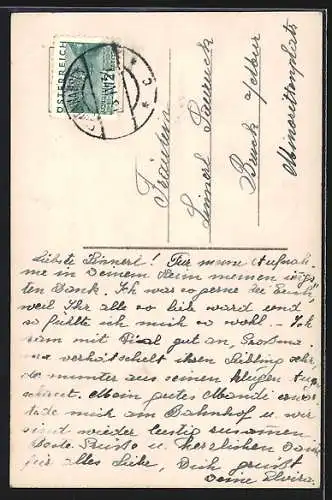 ÖSTERREICH
Fräulein
Linnerl
Bruck
Minoritenplatz
Liebste Linnerl! Für meine Aufnah-
me in Deinem Heim meinen innigs-
ten Dank. Ich war so gerne bei Euch
weil Ihr alle so lieb ward und
so fühlte ich mich so wohl. – Ich
kam mit gut an, Großma-
ma verhätschelt ihren Liebling sehr,
der munter aus seinen klugen Aug.
schaut. Mein gutes Mandi erwar-
tete mich am Bahnhof u. wir
sind wieder lustig zusammen.
Grüsse u. herzlichen Dank
für alles Liebe, Dich grüsst
Deine Elvira.